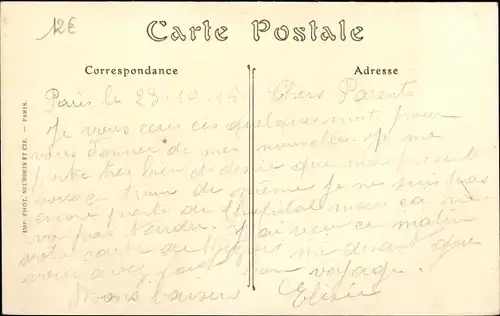 12€
Carte Postale
Correspondance
Adresse
IMP. PHOT. NEURDEIN ET CIE. — PARIS.
Paris le 28-10-15 Chers Parents
Je vous ces quelques mot pour
vous donner de mes nouvelles. Je me
porte très bien et désire que ma présente
vous en train de même je ne suis pas
encore de l'hopital mais ça ne
va pas tarder. J'ai reçu ce matin
votre carte de me disant que
vous avez fait bon voyage.
Bons baisers Elisée